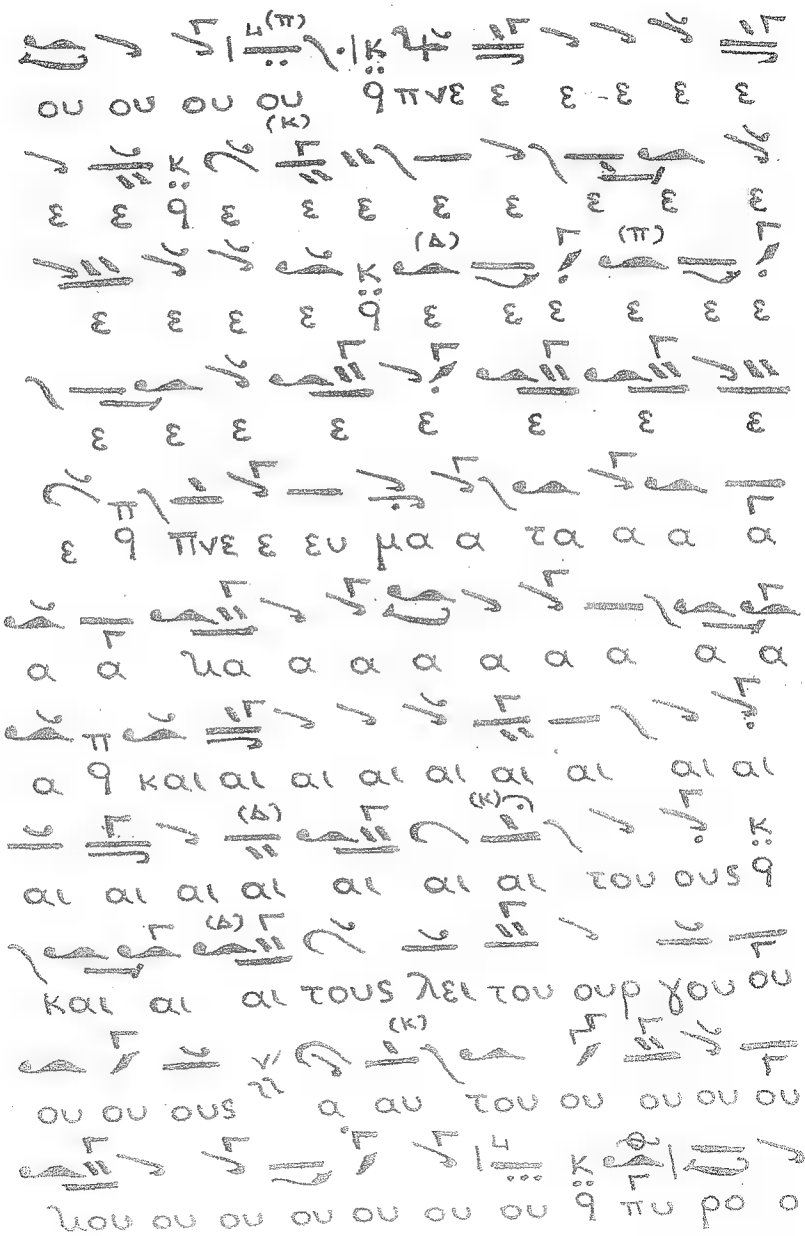 (π) κ
ου ου ου ου πνε ε ε -ε ε ε
(κ) κ
ε ε ε ε ε ε ε ε ε ε
κ (Δ) (π)
ε ε ε ε ε ε ε ε ε ε
ε ε ε ε ε ε ε ε
π
ε πνε ε ευ μα α τα α α α
α α χα α α α α α α α α
π
α και αι αι αι αι αι αι αι αι
(Δ) (κ) κ
αι αι αι αι αι αι αι του ους
(Δ)
και αι αι τους λει του ουρ γου ου
(κ)
ου ου ους α αυ του ου ου ου ου
κ
χου ου ου ου ου ου ου πυ ρο ο